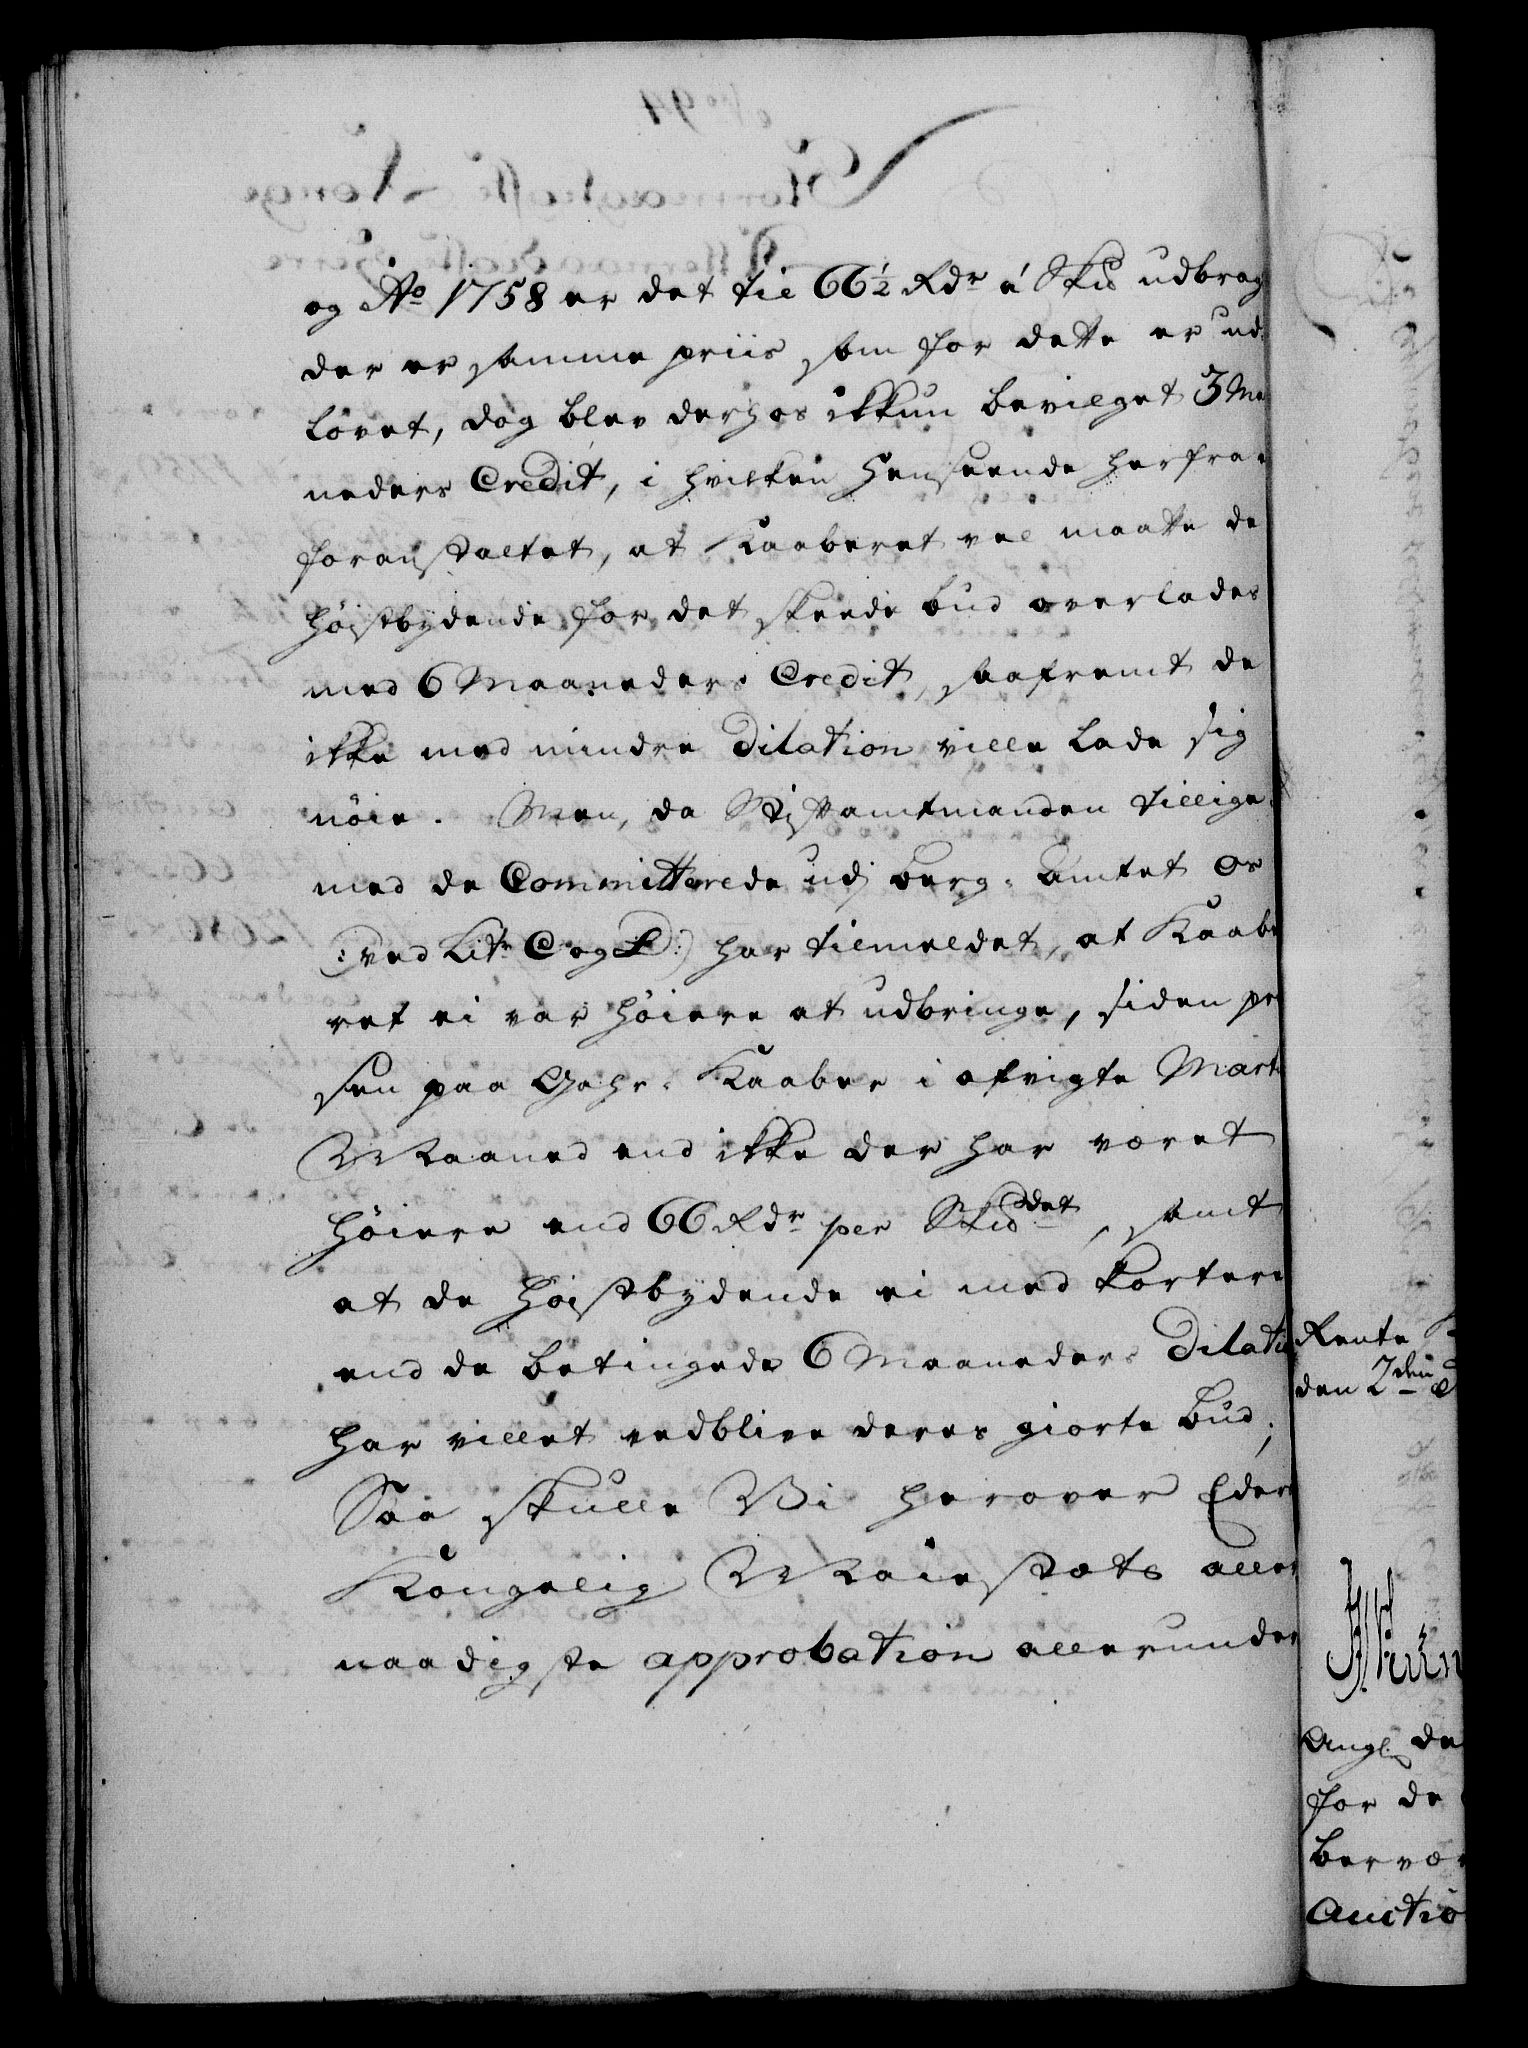 og Ao 1758 er det til 66½ Rdr á Skd udbrag
der er samme priis som for dette er ud-
lovet, dog blev derhos ikkun bevilget 3 Ma
neders Credit, i hvilken Henseende herfra
foranstaltet, at Kaaberet vel maatte de
høistbydende for det skeede bud overlades
med 6 Maaneders Credit, saafremt de
ikke med mindre Dilation ville lade sig
nöie. Men, da Stiftamtmanden tillige
med de Committerede udj berg-Amtet os
(:ved Litr C og D:) har tilmeldet, at Kaabe
ret ei var höiere at udbringe, siden pri
sen paa Gahr-Kaaber i afvigte Marti
Maaned end ikke der har været
höiere end 66 Rdr per Skddet, samt
at de Höistbydende ei med kortere
end de betingede 6 Maaneders Dilatio
har villet vedblive deres giorte bud;
Saa skulle Vi herover Eders
Kongelig Maiestæts aller
naadigste approbation allerunder
Rente K
den 2den
Angl. de
for de
bervær
Auctio